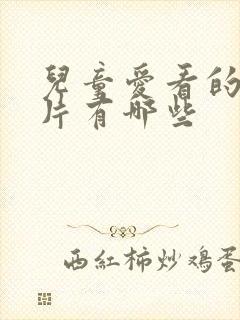 兒童愛看的
片有哪些
西紅柿炒鸡蛋